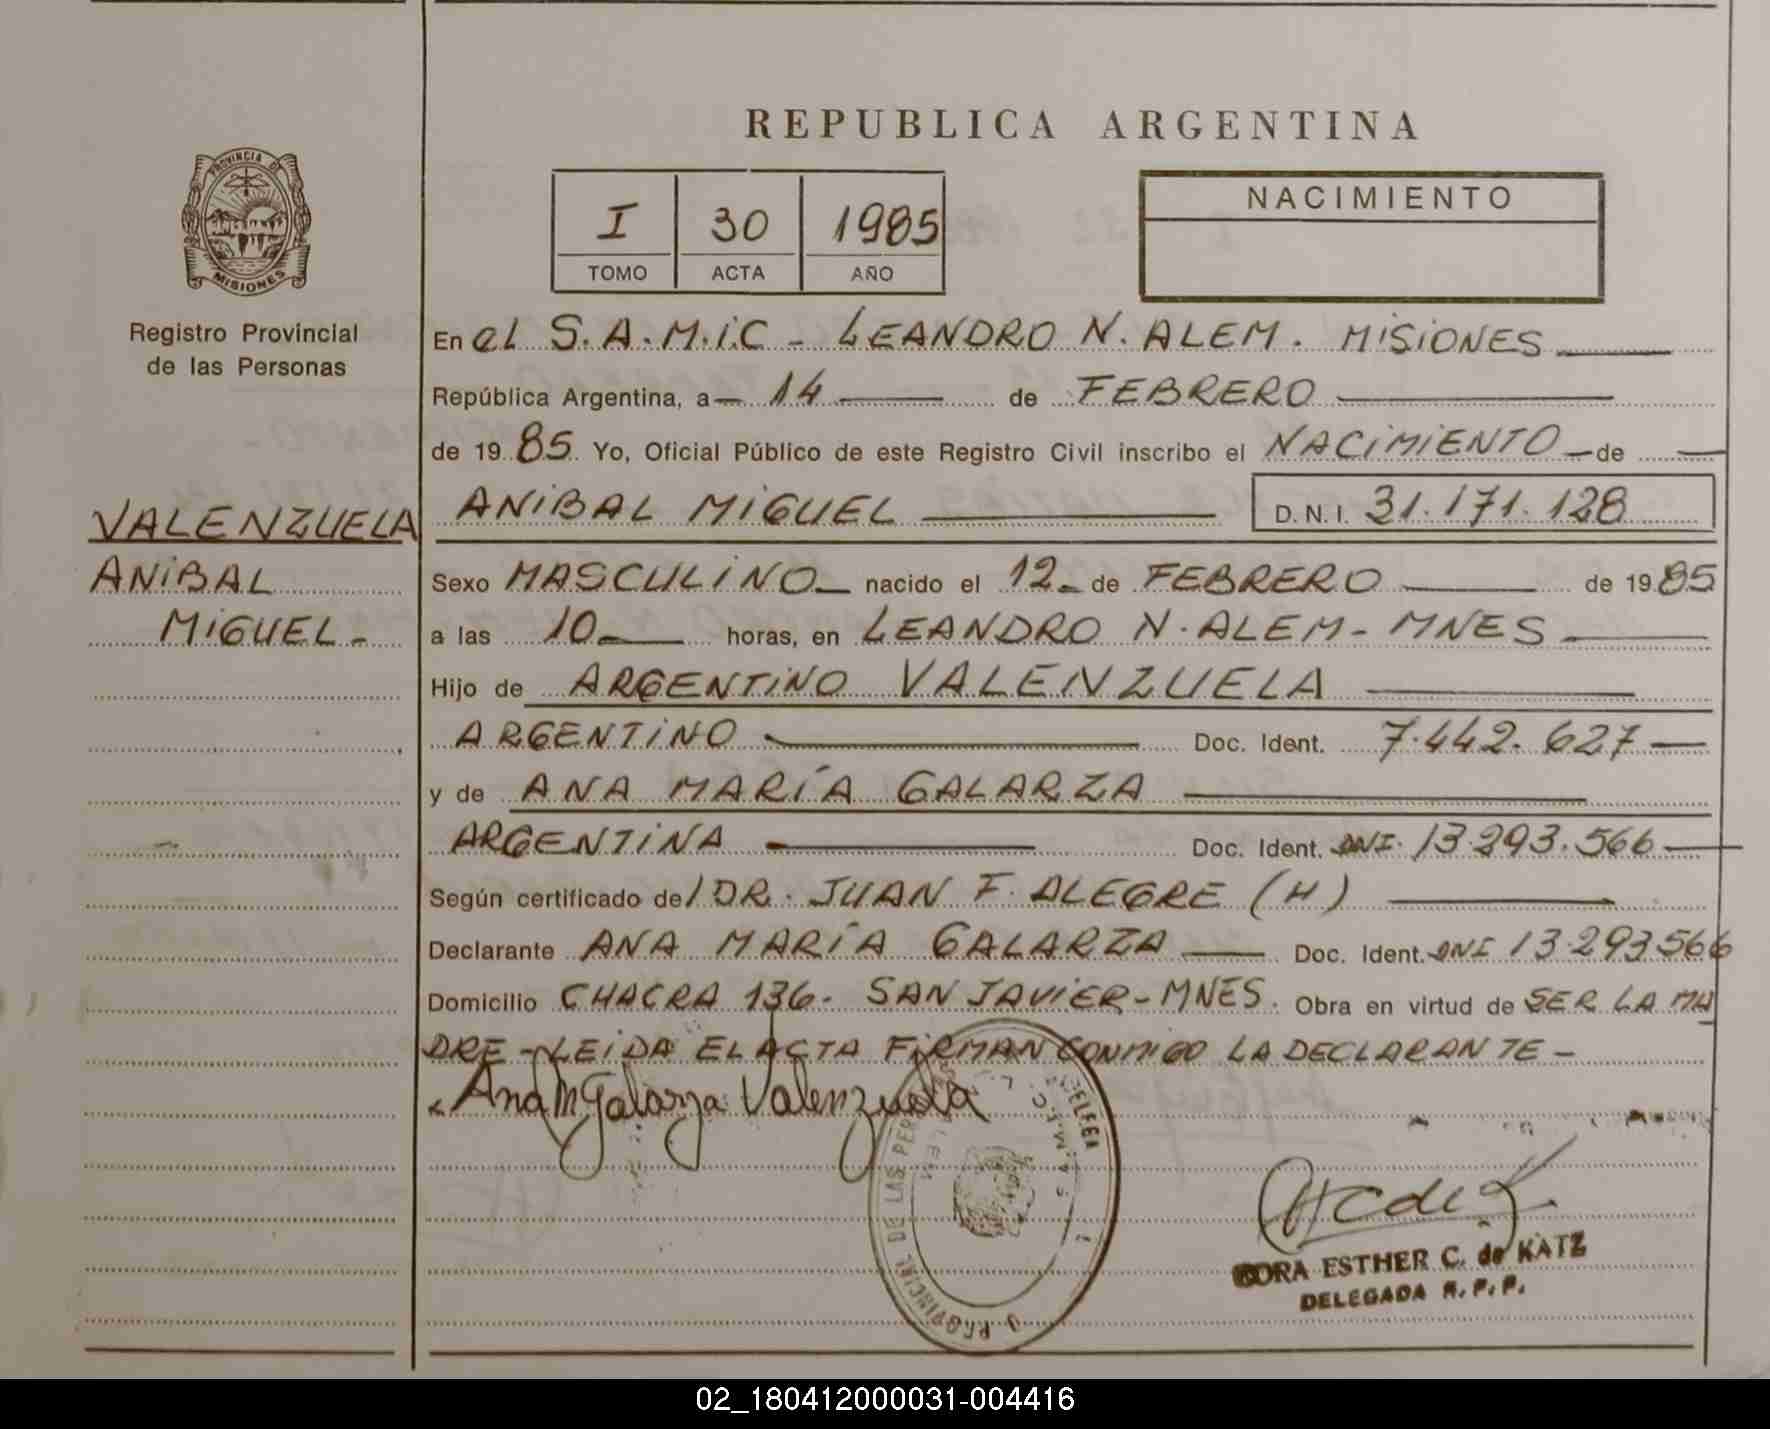 REPUBLICA ARGENTINA
PROVINCIA DE
MISIONES
Registro Provincial
de las Personas
I 30 1985
TOMO ACTA AÑO
NACIMIENTO
En el S.A.M.i.C - LEANDRO N. ALEM. MiSiONES
República Argentina, a 14 de FEBRERO
de 1985 Yo, Oficial Público de este Registro Civil inscribo el NACiMiENTO de
VALENZUELA
ANiBAL
MiGUEL-
ANiBAL MiGUEL D.N.I. 31.171.128
Sexo MASCULiNO nacido el 12 de FEBRERO de 1985
a las 10 horas, en LEANDRO N. ALEM - MNES
Hijo de ARGENTiNO VALENZUELA
ARGENTiNO Doc. Ident. 7.442.627
y de ANA MARÍA GALARZA
ARGENTiNA Doc. Ident. DNI. 13.293.566
Según certificado de/ DR. JUAN F. ALEGRE (H)
Declarante ANA MARÍA GALARZA Doc. Ident. DNI 13.293.566
Domicilio CHACRA 136. SAN JAViER-MNES. Obra en virtud de SER LA MA
DRE - LEiDA EL ACTA FiRMAN CONMiGO LA DECLARANTE -
Ana M Galarza Valenzuela
PROVINCIAL DE LAS PER
S.A.M.I.C.
DORA ESTHER C. de KATZ
DELEGADA R.P.P.
02_180412000031-004416